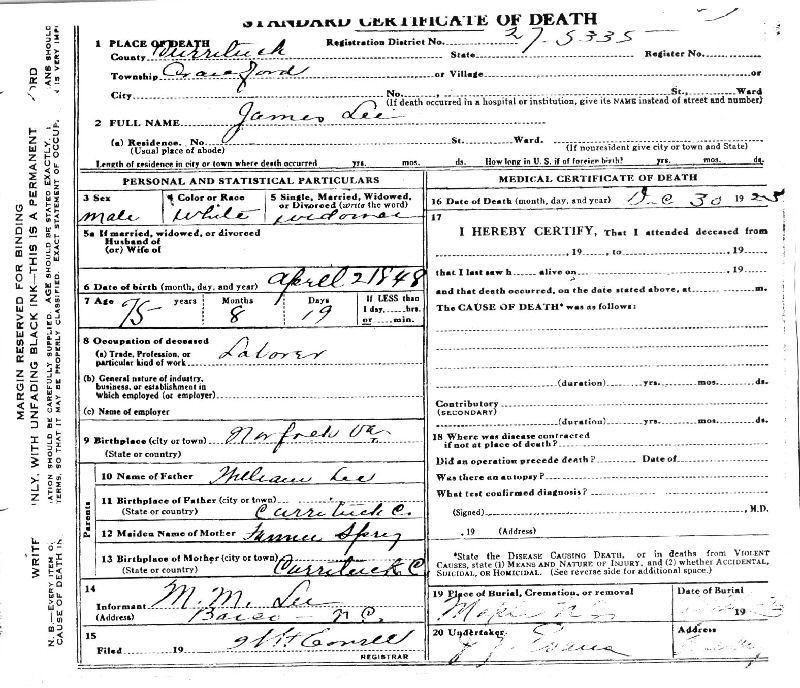 STANDARD CERTIFICATE OF DEATH
1 PLACE OF DEATH
Registration District No. 27-5335
County Currituck
State
Register No.
Township Crawford or Village or
City No., St., Ward
(If death occurred in a hospital or institution, give its NAME instead of street and number)
2 FULL NAME James Lee
(a) Residence. No. St. Ward.
(Usual place of abode)
(If nonresident give city or town and State)
Length of residence in city or town where death occurred yrs. mos. ds. How long in U. S. if of foreign birth? yrs. mos. ds.
PERSONAL AND STATISTICAL PARTICULARS
3 Sex
male
4 Color or Race
White
5 Single, Married, Widowed, or Divorced (write the word)
widower
5a If married, widowed, or divorced
Husband of
(or) Wife of
6 Date of birth (month, day, and year) April 2 1848
7 Age 75 years
Months 8
Days 19
If LESS than
1 day, hrs.
or min.
8 Occupation of deceased
(a) Trade, Profession, or
particular kind of work Laborer
(b) General nature of industry,
business, or establishment in
which employed (or employer)
(c) Name of employer
9 Birthplace (city or town) Norfolk Va.
(State or country)
Parents
10 Name of Father William Lee
11 Birthplace of Father (city or town)
(State or country) Currituck C.
12 Maiden Name of Mother
13 Birthplace of Mother (city or town)
(State or country) Currituck C
14
Informant M. M. Lee
(Address) Barco N C.
15
Filed 19
REGISTRAR
MEDICAL CERTIFICATE OF DEATH
16 Date of Death (month, day, and year) Dec 30 1925
17
I HEREBY CERTIFY, That I attended deceased from
, 19 , to , 19
that I last saw h alive on , 19
and that death occurred, on the date stated above, at m.
The CAUSE OF DEATH* was as follows:
(duration) yrs. mos. ds.
Contributory
(SECONDARY)
(duration) yrs. mos. ds.
18 Where was disease contracted
if not at place of death?
Did an operation precede death? Date of
Was there an autopsy?
What test confirmed diagnosis?
(Signed) , M.D.
, 19 (Address)
*State the DISEASE CAUSING DEATH, or in deaths from VIOLENT
CAUSES, state (1) MEANS AND NATURE OF INJURY, and (2) whether ACCIDENTAL,
SUICIDAL, OR HOMICIDAL. (See reverse side for additional space.)
19 Place of Burial, Cremation, or removal
Maple N C
Date of Burial
19
20 Undertaker
Evans
Address
MARGIN RESERVED FOR BINDING
WRITE
NLY, WITH UNFADING BLACK INK—THIS IS A PERMANENT
ORD
N. B.—EVERY ITEM O
ATION SHOULD BE CAREFULLY SUPPLIED. AGE SHOULD BE STATED EXACTLY.
ANS SHOULD
CAUSE OF DEATH IN
TERMS, SO THAT IT MAY BE PROPERLY CLASSIFIED. EXACT STATEMENT OF OCCUP.
IS VERY IMP